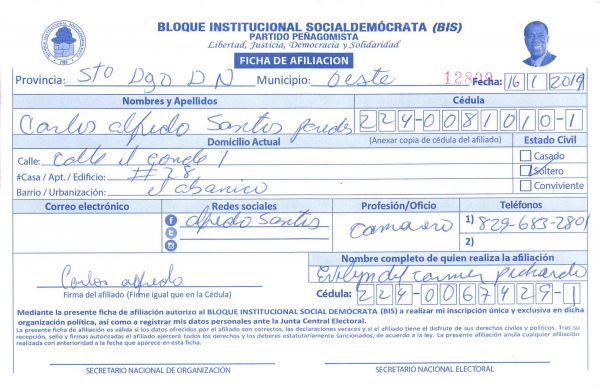 BLOQUE INSTITUCIONAL SOCIALDEMÓCRATA (BIS)
PARTIDO PEÑAGOMISTA
Libertad, Justicia, Democracia y Solidaridad
FICHA DE AFILIACION
Provincia: Sto Dgo DN Municipio: Oeste Fecha: 16/1/2019
Nombres y Apellidos Cédula
Carlos alfredo Santos paredes 224-0081010-1
Domicilio Actual (Anexar copia de cédula del afiliado) Estado Civil
Calle: Calle el conde 1 Casado
#Casa / Apt. / Edificio: #28 Soltero
Barrio / Urbanización: el abanico Conviviente
Correo electrónico Redes sociales Profesión/Oficio Teléfonos
alfredo Santos Camarero 1) 829-683-2801
2)
Nombre completo de quien realiza la afiliación
Carlos alfredo Evelyn del carmen pichardo
Firma del afiliado (Firme igual que en la Cédula) Cédula: 224-0067429-1
Mediante la presente ficha de afiliación autorizo al BLOQUE INSTITUCIONAL SOCIAL DEMÓCRATA (BIS) a realizar mi inscripción única y exclusiva en dicha
organización política, así como a registrar mis datos personales ante la Junta Central Electoral.
La presente ficha de afiliación es válida si los datos ofrecidos por el afiliado son correctos, las declaraciones veraces y si el afiliado tiene el disfrute de sus derechos civiles y políticos. Tras su
recepción, sello y firmas autorizadas el afiliado ejercerá todos los derechos y los deberes estatutariamente sancionados, de acuerdo a la ley. La presente afiliación anula cualquier afiliación
realizada con anterioridad a la fecha que aparece en esta ficha.
SECRETARIO NACIONAL DE ORGANIZACIÓN SECRETARIO NACIONAL ELECTORAL